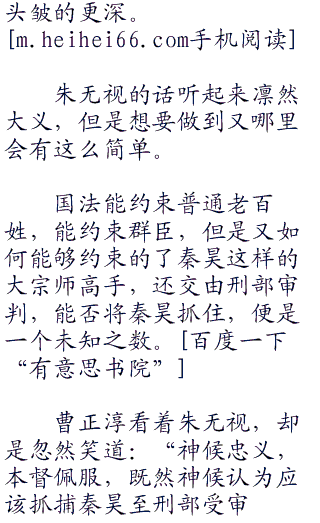 头皱的更深。
[m.heihei66.com手机阅读]
朱无视的话听起来凛然
大义，但是想要做到又哪里
会有这么简单。
国法能约束普通老百
姓，能约束群臣，但是又如
何能够约束的了秦昊这样的
大宗师高手，还交由刑部审
判，能否将秦昊抓住，便是
一个未知之数。[百度一下
“有意思书院”]
曹正淳看着朱无视，却
是忽然笑道：“神候忠义，
本督佩服，既然神候认为应
该抓捕秦昊至刑部受审